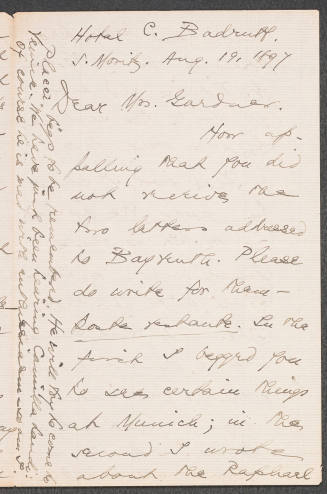 Hotel C. Badrutt.
S. Moritz. Aug. 19. 1897
Dear Mrs. Gardner.
How ap-
palling that you did
not receive the
two letters addressed
to Bayreuth. Please
do write for them -
Poste restante. In the
first I begged you
to see certain things
at Munich; in the
second I wrote
about the Raphael
Placci begs to be remembered. He will try to come to
Venice. We have just been hearing
of course he is